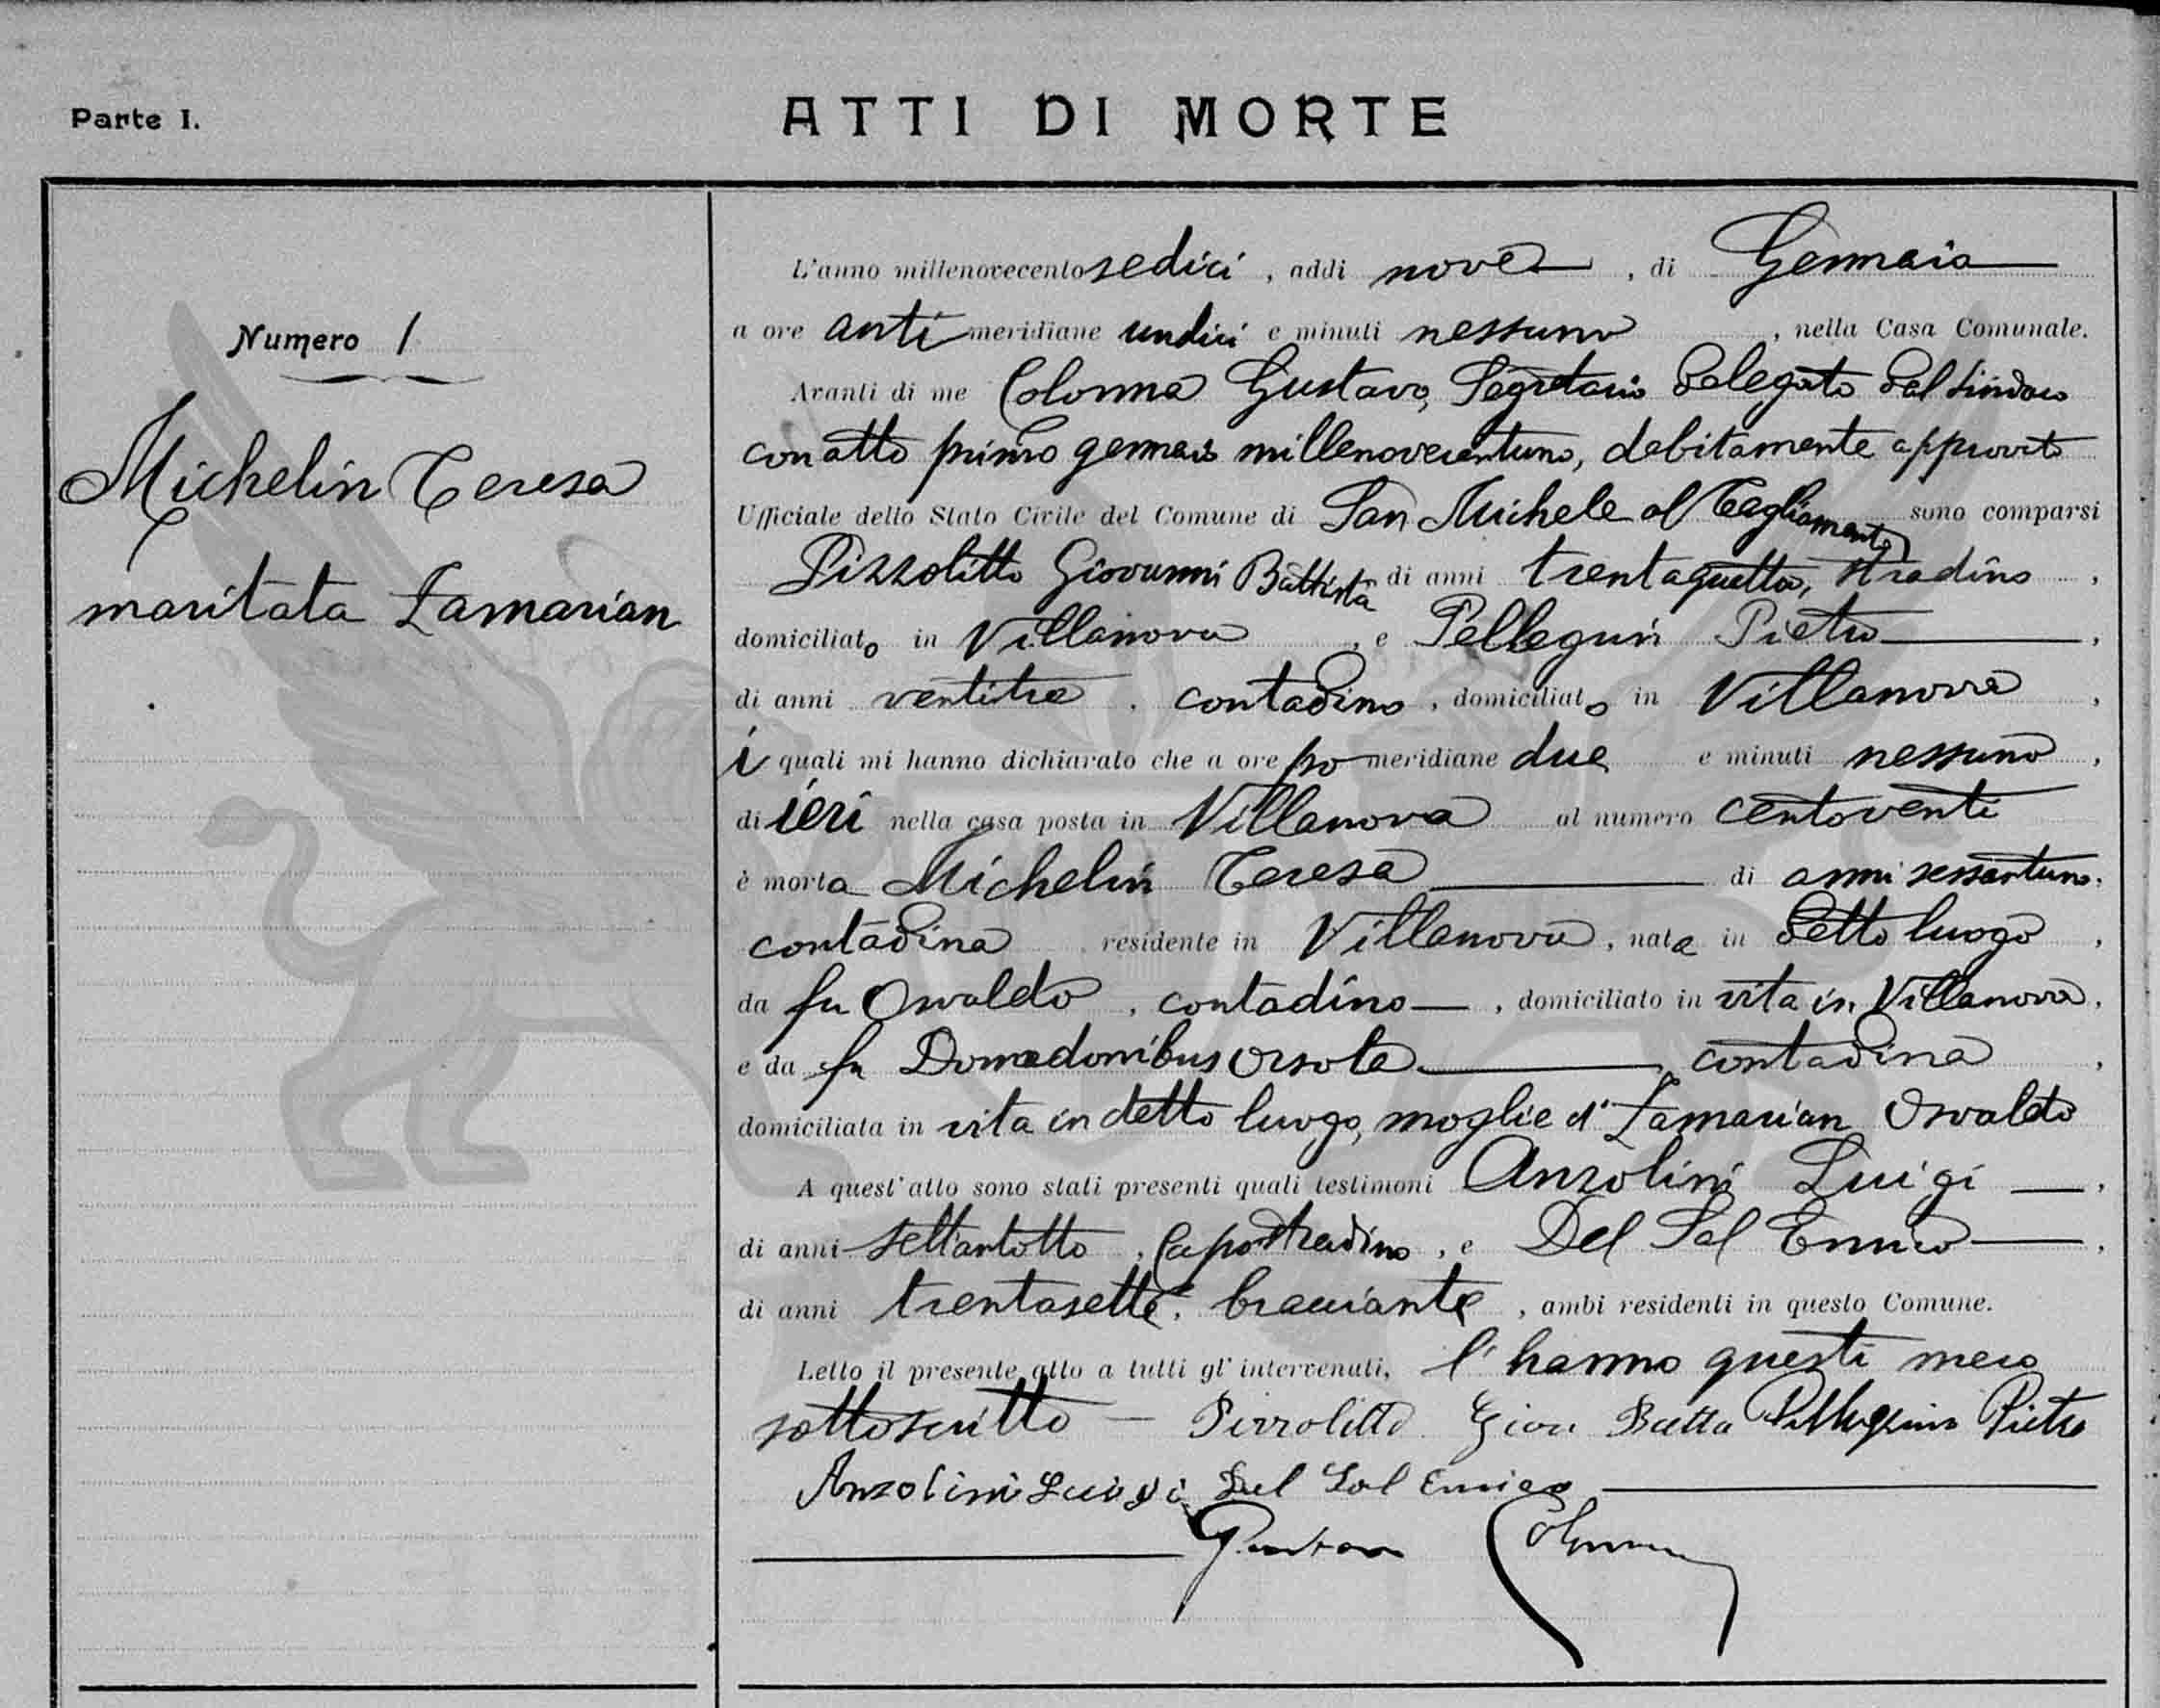 Parte I.
ATTI DI MORTE
Numero 1
Michelin Teresa
maritata Zamarian
L'anno millenovecento sedici, addì nove, di Gennaio
a ore anti meridiane undici e minuti nessuno, nella Casa Comunale.
Avanti di me Colonna Gustavo, Segretario delegato dal Sindaco
con atto primo gennaio millenovecentuno, debitamente approvato
Ufficiale dello Stato Civile del Comune di San Michele al Tagliamento sono comparsi
Pizzolitto Giovanni Battista di anni trentaquattro, stradino,
domiciliato in Villanova, e Pellegrin Pietro,
di anni ventitre, contadino, domiciliato in Villanova,
i quali mi hanno dichiarato che a ore po meridiane due e minuti nessuno,
di ieri nella casa posta in Villanova al numero centoventi
è morta Michelin Teresa di anni sessantuno,
contadina, residente in Villanova, nata in detto luogo,
da fu Osvaldo, contadino, domiciliato in vita in Villanova,
e da fu Domedonibus Orsola, contadina,
domiciliata in vita in detto luogo, moglie di Zamarian Osvaldo
A quest'atto sono stati presenti quali testimoni Anzolini Luigi,
di anni settantotto, Capostradino, e Del Sal Enrico,
di anni trentasette, bracciante, ambi residenti in questo Comune.
Letto il presente atto a tutti gl'intervenuti, l'hanno questi meco
sottoscritto — Pizzolitto Giov. Batta Pellegrin Pietro
Anzolini Luigi Del Sal Enrico
Gustavo Colonna